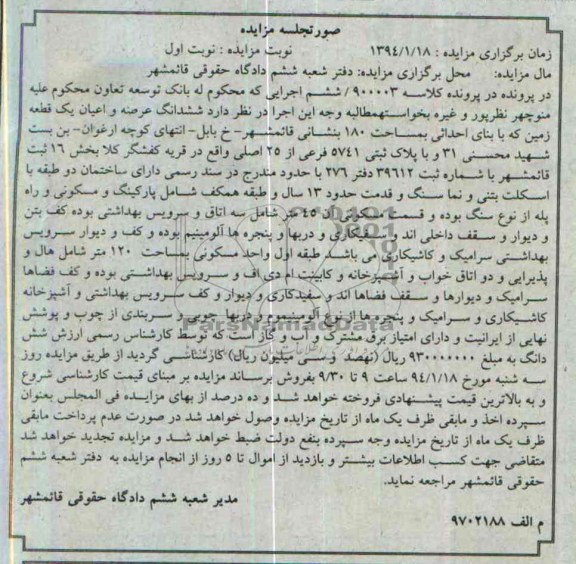 صورتجلسه مزایده
زمان برگزاری مزایده : ۱۳۹٤/۱/۱۸ نوبت مزایده : نوبت اول
مال مزایده: محل برگزاری مزایده: دفتر شعبه ششم دادگاه حقوقی قائمشهر
در پرونده در پرونده کلاسه ۹۰۰۰۰۳ / ششم اجرایی که محکوم له بانک توسعه تعاون محکوم علیه
منوچهر نظرپور و غیره بخواستهمطالبه وجه این اجرا در نظر دارد ششدانگ عرصه و اعیان یک قطعه
زمین که با بنای احداثی بمساحت ۱۸۰ بنشانی قائمشهر- خ بابل- انتهای کوچه ارغوان- بن بست
شهید محسنی ۳۱ و با پلاک ثبتی ۵۷٤۱ فرعی از ۲۵ اصلی واقع در قریه کفشگر کلا بخش ۱٦ ثبت
قائمشهر با شماره ثبت ۳۹٦۱۲ دفتر ۲۷٦ با حدود مندرج در سند رسمی دارای ساختمان دو طبقه با
اسکلت بتنی و نما سنگ و قدمت حدود ۱۳ سال و طبقه همکف شامل پارکینگ و مسکونی و راه
پله از نوع سنگ بوده و قسمت مسکونی آن ٤۵ متر شامل سه اتاق و سرویس بهداشتی بوده کف بتن
و دیوار و سقف داخلی اند و سفیدکاری و دربها و پنجره ها آلومینیم بوده و کف و دیوار سرویس
بهداشتی سرامیک و کاشیکاری می باشد طبقه اول واحد مسکونی بمساحت ۱۲۰ متر شامل هال و
پذیرایی و دو اتاق خواب و آشپزخانه و کابینت ام دی اف و سرویس بهداشتی بوده و کف فضاها
سرامیک و دیوارها و سقف فضاها اند و سفیدکاری و دیوار و کف سرویس بهداشتی و آشپزخانه
کاشیکاری و سرامیک و پنجره ها از نوع آلومینیوم و دربها چوبی و سربندی از چوب و پوشش
نهایی از ایرانیت و دارای امتیاز برق مشترک و آب و گاز است که توسط کارشناس رسمی ارزش شش
دانگ به مبلغ ۹۳۰۰۰۰۰۰۰ ریال (نهصد و سی میلیون ریال) کارشناسی گردید از طریق مزایده روز
سه شنبه مورخ ۹٤/۱/۱۸ ساعت ۹ تا ۹/۳۰ بفروش برساند مزایده بر مبنای قیمت کارشناسی شروع
و به بالاترین قیمت پیشنهادی فروخته خواهد شد و ده درصد از بهای مزایده فی المجلس بعنوان
سپرده اخذ و مابقی ظرف یک ماه از تاریخ مزایده وصول خواهد شد در صورت عدم پرداخت مابقی
ظرف یک ماه از تاریخ مزایده وجه سپرده بنفع دولت ضبط خواهد شد و مزایده تجدید خواهد شد
متقاضی جهت کسب اطلاعات بیشتر و بازدید از اموال تا ۵ روز از انجام مزایده به دفتر شعبه ششم
حقوقی قائمشهر مراجعه نماید.
مدیر شعبه ششم دادگاه حقوقی قائمشهر
م الف ۹۷۰۲۱۸۸
ParsNamadData